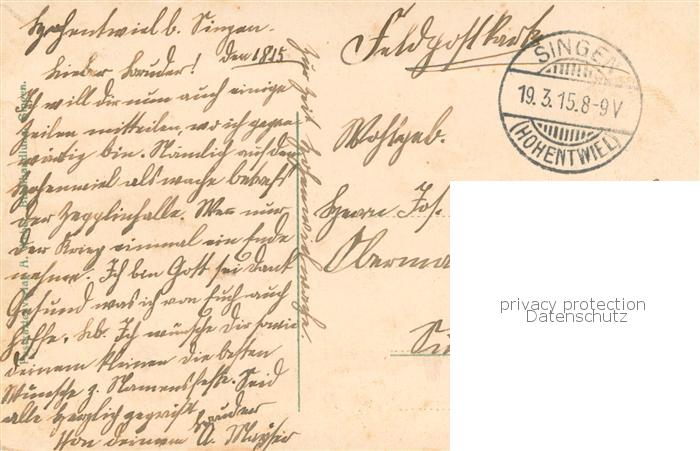 Hohentwiel b. Singen.
Lieber Bruder! Den 18 15
Ich will dir nun auch einige
Zeilen mitteilen, wo ich gegen
wärtig bin. Nämlich auf dem
Hohenwiel als wache
der Zepplinhalle. Wen nur
der Krieg einmal ein Ende
nehme. Ich bin Gott sei Dank
Gesund was ich von Euch auch
hoffe. Lb. Ich wünsche Dir sowie
deinem kleinen die besten
Wünsche z. Namensfeste. Seid
alle Herzlich gegrüßt
Von deinem Bruder
A. Mayser
Zur Zeit
Feldpostkarte
SINGEN
19.3.15.8-9V
(HOHENTWIEL)
Wohlgeb.
Herrn Jos.
Oberma
privacy protection
Datenschutz